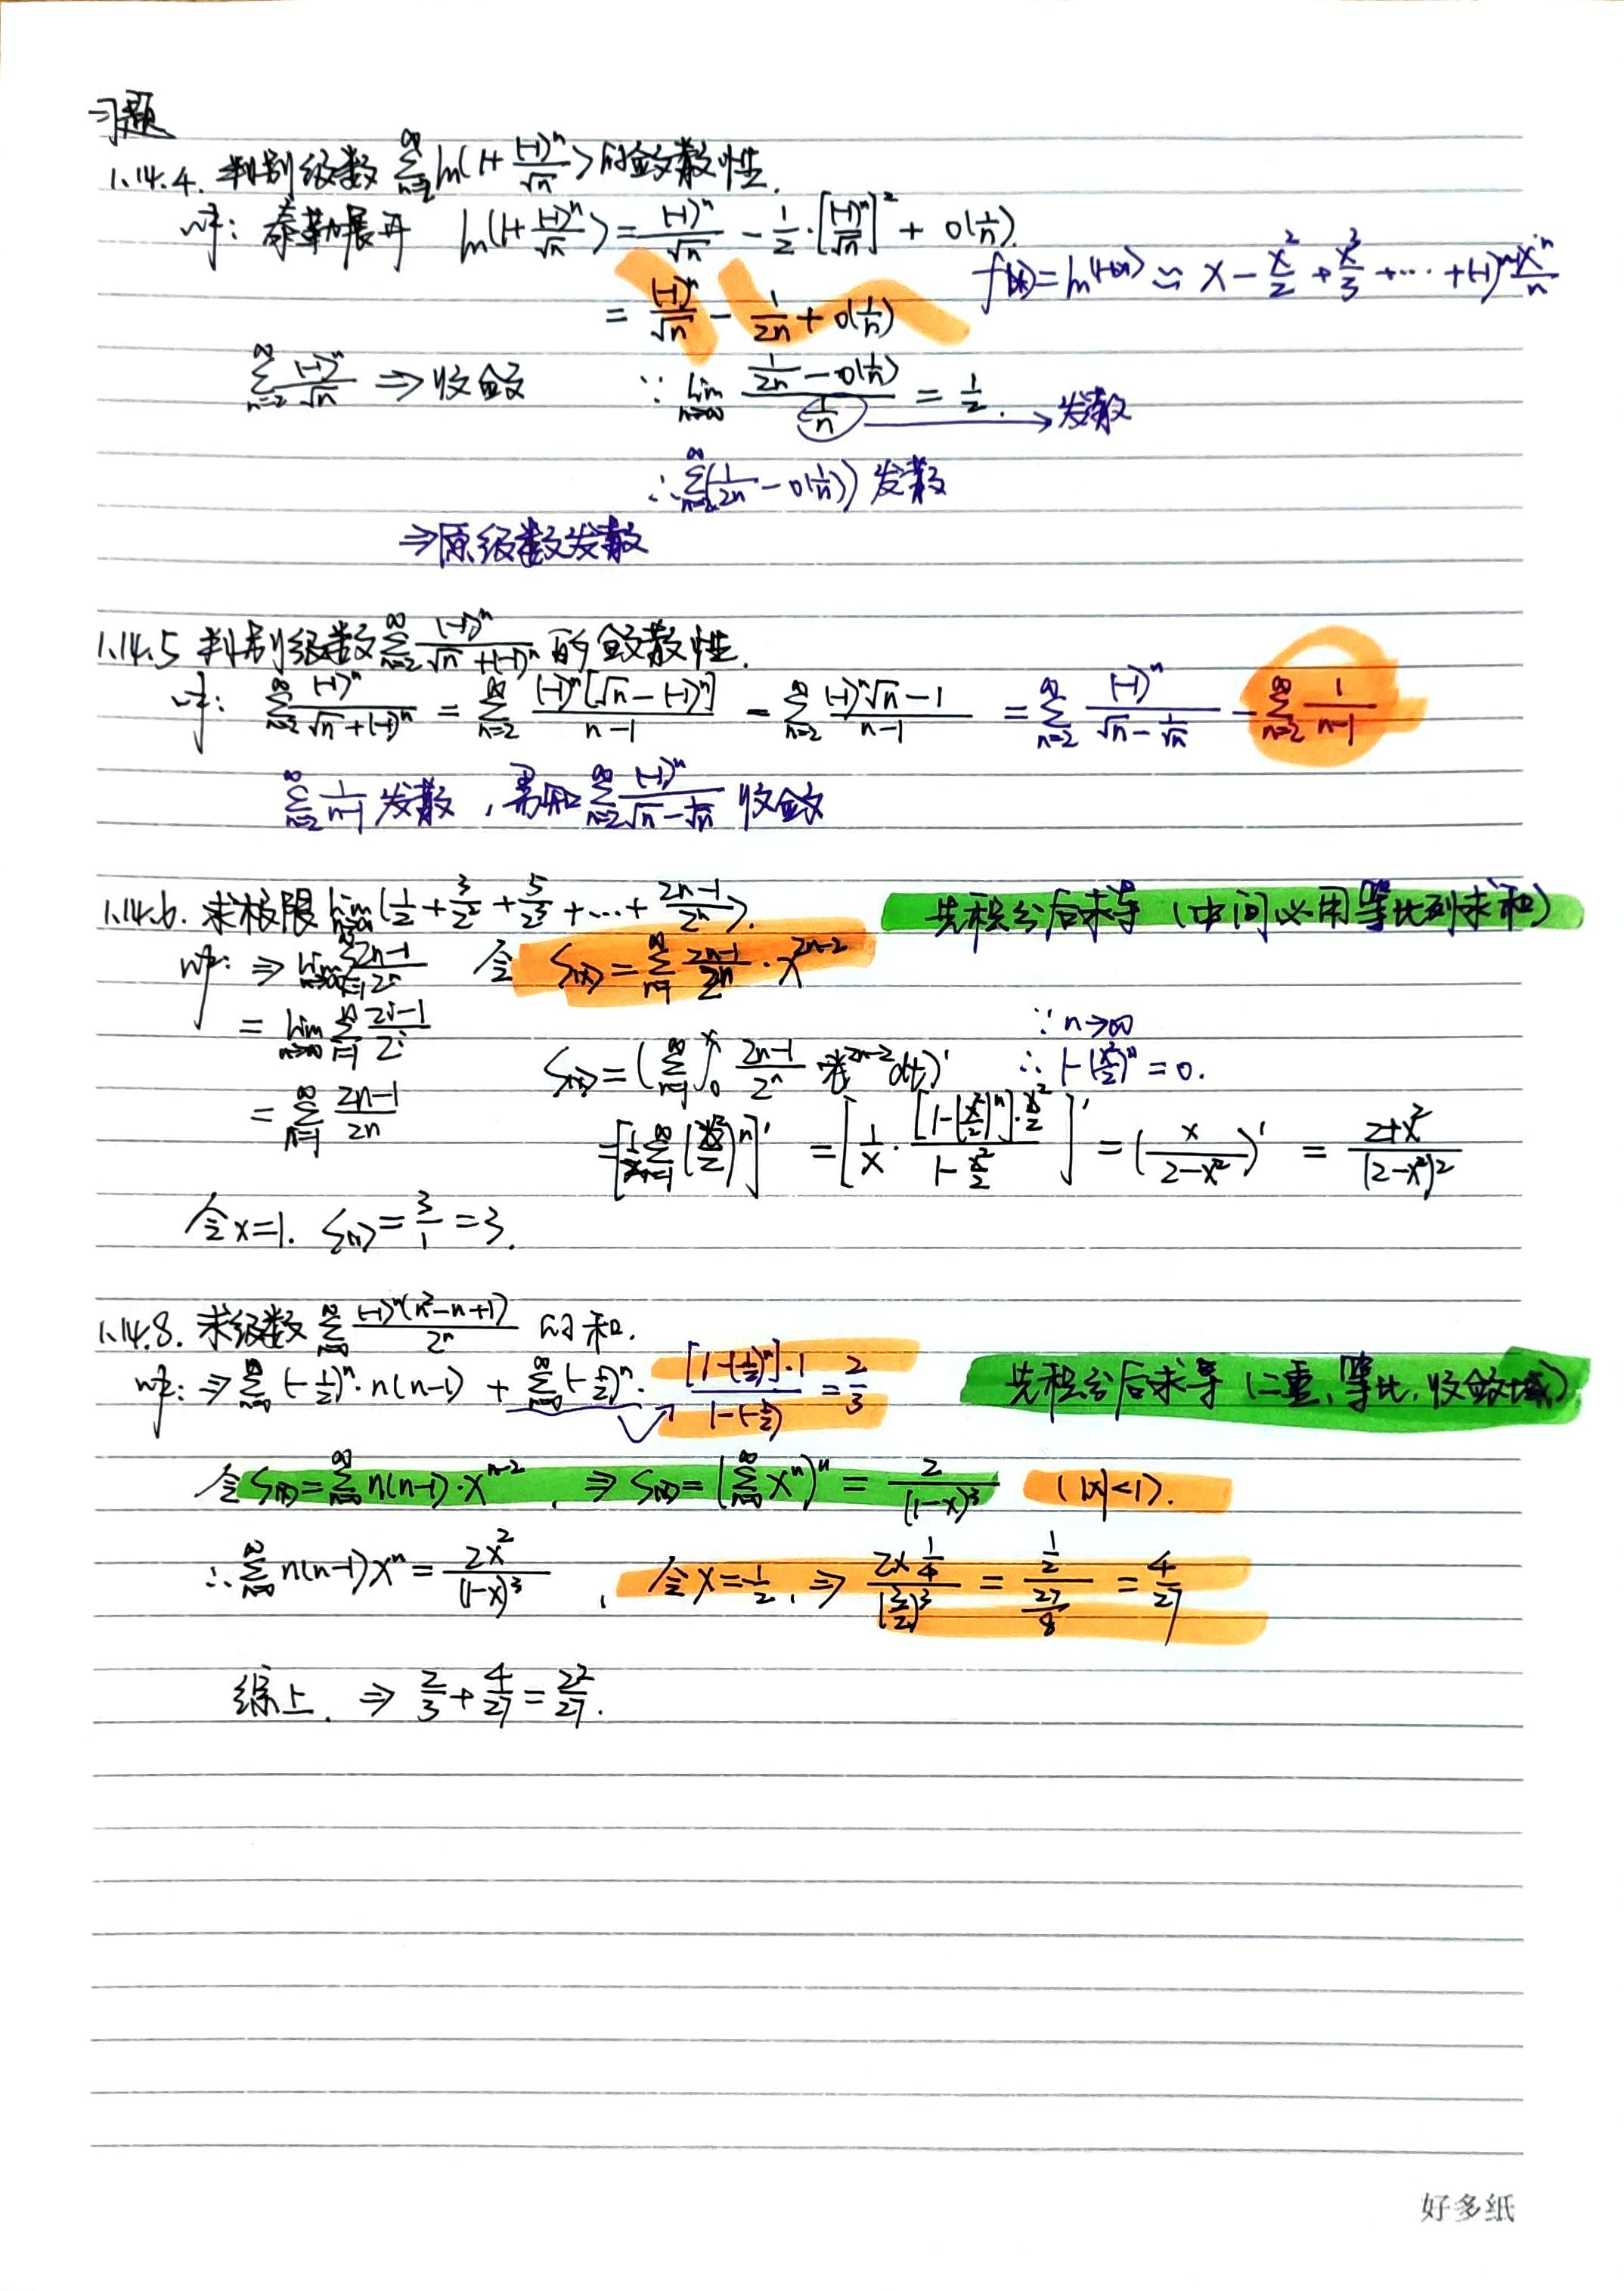 习题
1.14.4. 判别级数 $\sum_{n=2}^{\infty} \ln(1+\frac{(-1)^n}{\sqrt{n}})$ 的敛散性.
解: 泰勒展开 $\ln(1+\frac{(-1)^n}{\sqrt{n}}) = \frac{(-1)^n}{\sqrt{n}} - \frac{1}{2}\cdot[\frac{(-1)^n}{\sqrt{n}}]^2 + o(\frac{1}{n})$.
$f(x) = \ln(1+x) \approx x - \frac{x^2}{2} + \frac{x^3}{3} + \cdots + (-1)^{n-1}\frac{x^n}{n}$
$= \frac{(-1)^n}{\sqrt{n}} - \frac{1}{2n} + o(\frac{1}{n})$
$\sum_{n=2}^{\infty} \frac{(-1)^n}{\sqrt{n}}$ ⇒ 收敛 ∵ $\lim_{n\to\infty} \frac{\frac{1}{2n} - o(\frac{1}{n})}{\frac{1}{n}} = \frac{1}{2}$. → 发散
∴ $\sum_{n=2}^{\infty}(\frac{1}{2n} - o(\frac{1}{n}))$ 发散
⇒原级数发散
1.14.5 判别级数 $\sum_{n=2}^{\infty} \frac{(-1)^n}{\sqrt{n}+(-1)^n}$ 的敛散性.
解: $\sum_{n=2}^{\infty} \frac{(-1)^n}{\sqrt{n}+(-1)^n} = \sum_{n=2}^{\infty} \frac{(-1)^n[\sqrt{n}-(-1)^n]}{n-1} = \sum_{n=2}^{\infty} \frac{(-1)^n\sqrt{n}-1}{n-1} = \sum_{n=2}^{\infty} \frac{(-1)^n}{\sqrt{n}-\frac{1}{\sqrt{n}}} - \sum_{n=2}^{\infty} \frac{1}{n-1}$
$\sum_{n=2}^{\infty} \frac{1}{n-1}$ 发散, 易知 $\sum_{n=2}^{\infty} \frac{(-1)^n}{\sqrt{n}-\frac{1}{\sqrt{n}}}$ 收敛
1.14.6. 求极限 $\lim_{n\to\infty}(\frac{1}{2}+\frac{3}{2^2}+\frac{5}{2^3}+\cdots+\frac{2n-1}{2^n})$. 先积分后求导 (中间必用等比列求和)
解: ⇒ $\lim_{n\to\infty}\sum_{i=1}^{n}\frac{2n-1}{2^n}$ 令 $S(x) = \sum_{n=1}^{\infty} \frac{2n-1}{2^n}\cdot x^{2n-2}$
$= \lim_{n\to\infty}\sum_{i=1}^{n}\frac{2i-1}{2^i}$ ∵ n→∞
$S(x) = (\sum_{n=1}^{\infty}\int_0^x \frac{2n-1}{2^n} t^{2n-2}dt)'$ ∴ $1-(\frac{x^2}{2})^n = 0$.
$= \sum_{n=1}^{\infty}\frac{2n-1}{2n}$ $= [\frac{1}{x}\sum_{n=1}^{\infty}(\frac{x^2}{2})^n]' = [\frac{1}{x}\cdot\frac{[1-(\frac{x^2}{2})^n]\cdot\frac{x^2}{2}}{1-\frac{x^2}{2}}]' = (\frac{x}{2-x^2})' = \frac{2+x^2}{(2-x^2)^2}$
令x=1. $S(1) = \frac{3}{1} = 3$.
1.14.8. 求级数 $\sum_{n=0}^{\infty}\frac{(-1)^n(n^2-n+1)}{2^n}$ 的和.
解: ⇒ $\sum_{n=0}^{\infty}(-\frac{1}{2})^n\cdot n(n-1) + \sum_{n=0}^{\infty}(-\frac{1}{2})^n$. $\frac{[1-(-\frac{1}{2})^n]\cdot 1}{1-(-\frac{1}{2})} = \frac{2}{3}$ 先积分后求导 (二重, 等比, 收敛域)
令 $S(x) = \sum_{n=0}^{\infty} n(n-1)\cdot x^{n-2}$, ⇒ $S(x) = (\sum_{n=0}^{\infty}x^n)'' = \frac{2}{(1-x)^3}$ (|x|<1).
∴ $\sum_{n=0}^{\infty}n(n-1)x^n = \frac{2x^2}{(1-x)^3}$, 令 $x = -\frac{1}{2}$, ⇒ $\frac{2\times\frac{1}{4}}{(\frac{3}{2})^3} = \frac{\frac{1}{2}}{\frac{27}{8}} = \frac{4}{27}$
综上, ⇒ $\frac{2}{3}+\frac{4}{27} = \frac{22}{27}$.
好多纸